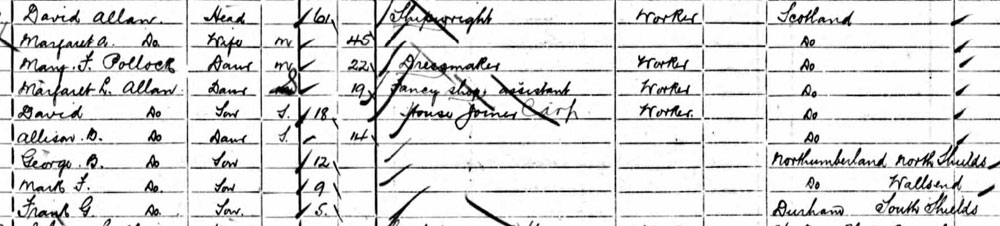 David Allan Head 61 Shipwright Worker Scotland
Margaret A. Do Wife M 45 Do
Mary F. Pollock Daur M 22 Dressmaker Worker Do
Margaret L. Allan Daur S 19 Fancy shop assistant Worker Do
David Do Son S. 18 House Joiner Carp Worker Do
Allison B. Do Daur S. 14 Do
George B. Do Son 12 Northumberland North Shields
Mark F. Do Son 9 Do Wallsend
Frank G. Do Son 5 Durham South Shields